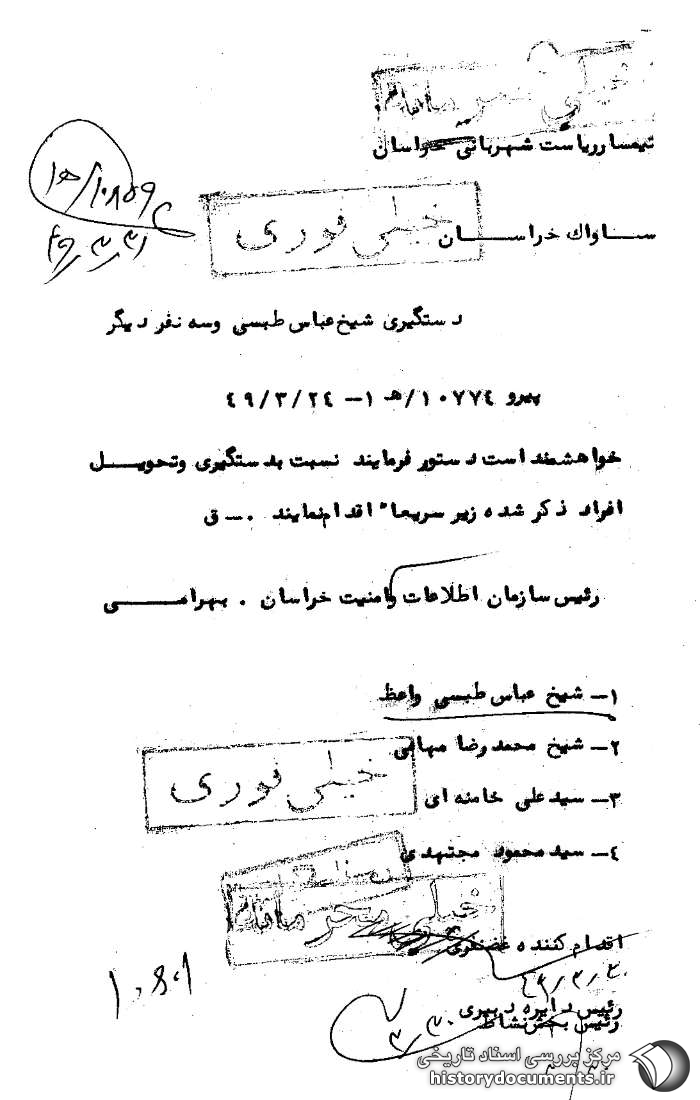 خیلی محرمانه
تیمسار ریاست شهربانی خراسان
۱۰۸۵۶/ه‍۱
۴۹/۳/۳۱
خیلی فوری
ساواک خراسان
دستگیری شیخ عباس طبسی وسه نفر دیگر
پیرو ۱۰۷۷۴/ه‍ ۱- ۴۹/۳/۲۴
خواهشمند است دستور فرمایند نسبت بدستگیری وتحویل
افراد ذکر شده زیر سریعا" اقدام نمایند . ـ ق
رئیس سازمان اطلاعات وامنیت خراسان . بهرامی
۱- شیخ عباس طبسی واعظ
۲- شیخ محمد رضا مهامی
خیلی فوری
۳- سید علی خامنه ای
۴- سید محمود مجتهدی
خیلی محرمانه
اقدام کننده غضنفری
۴۹/۳/۳۰
رئیس دایره دبیری
رئیس بخش نشاط
۳/۳۰
مرکز بررسی اسناد تاریخی
historydocuments.ir